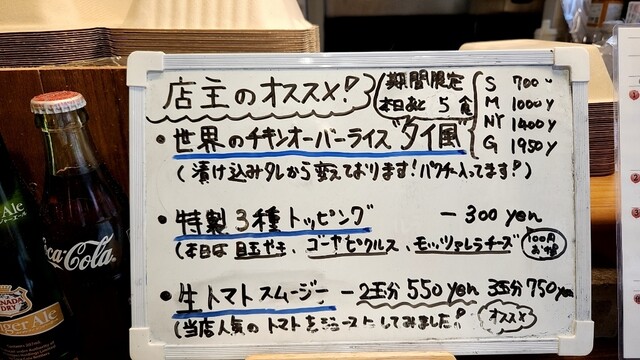 店主のオススメ!
期間限定
本日あと 5食
S 700y
M 1000y
NY 1400y
G 1950y
・世界のチキンオーバーライス"タイ風"
(漬け込みタレから変えております!パクチー入ってます!)
・特製3種トッピング -300yen
(本日は目玉ヤキ、ゴーヤピクルス、モッツァレラチーズ)
100円お得
・生トマトスムージー -2玉分550yen 3玉分750yen
(当店人気のトマトをジュースにしてみました!)
オススメ
Coca-Cola
Ale
CANADA DRY
Ginger Ale